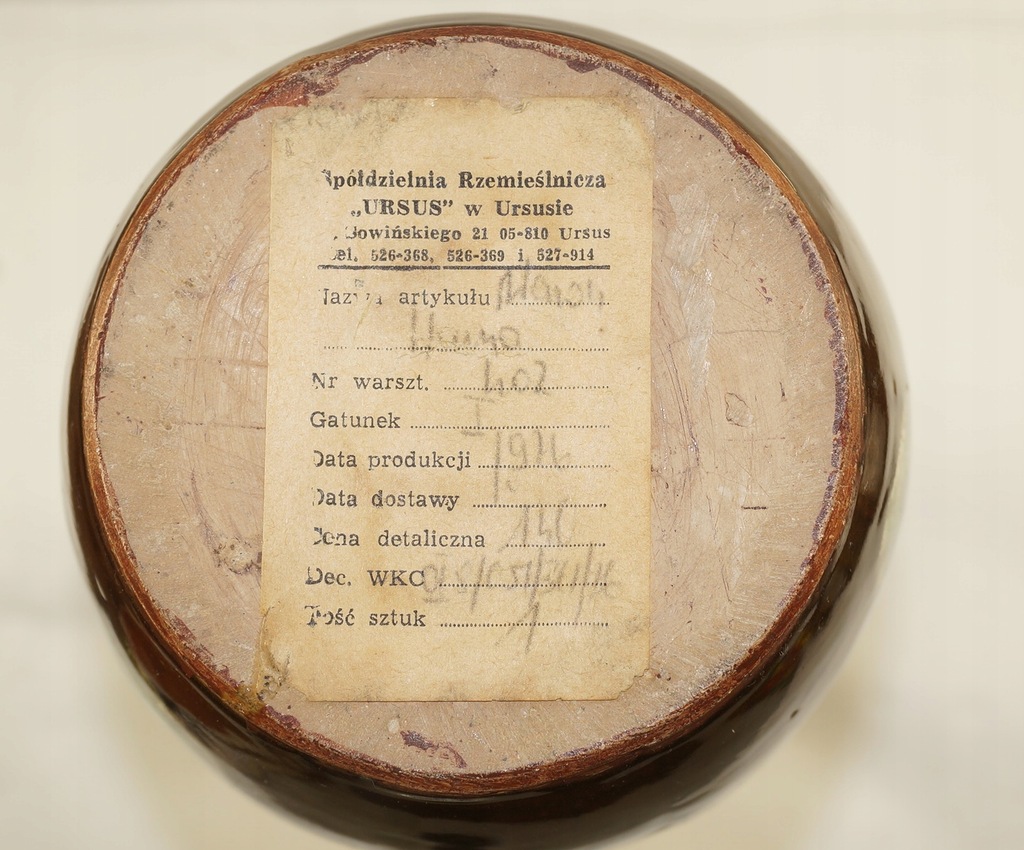 Spółdzielnia Rzemieślnicza
„URSUS” w Ursusie
Sowińskiego 21 05-810 Ursus
Tel. 526-368, 526-369 i 527-914
Nazwa artykułu
Nr warszt.
Gatunek I
Data produkcji
Data dostawy
Cena detaliczna
Dec. WKC
Ilość sztuk 1